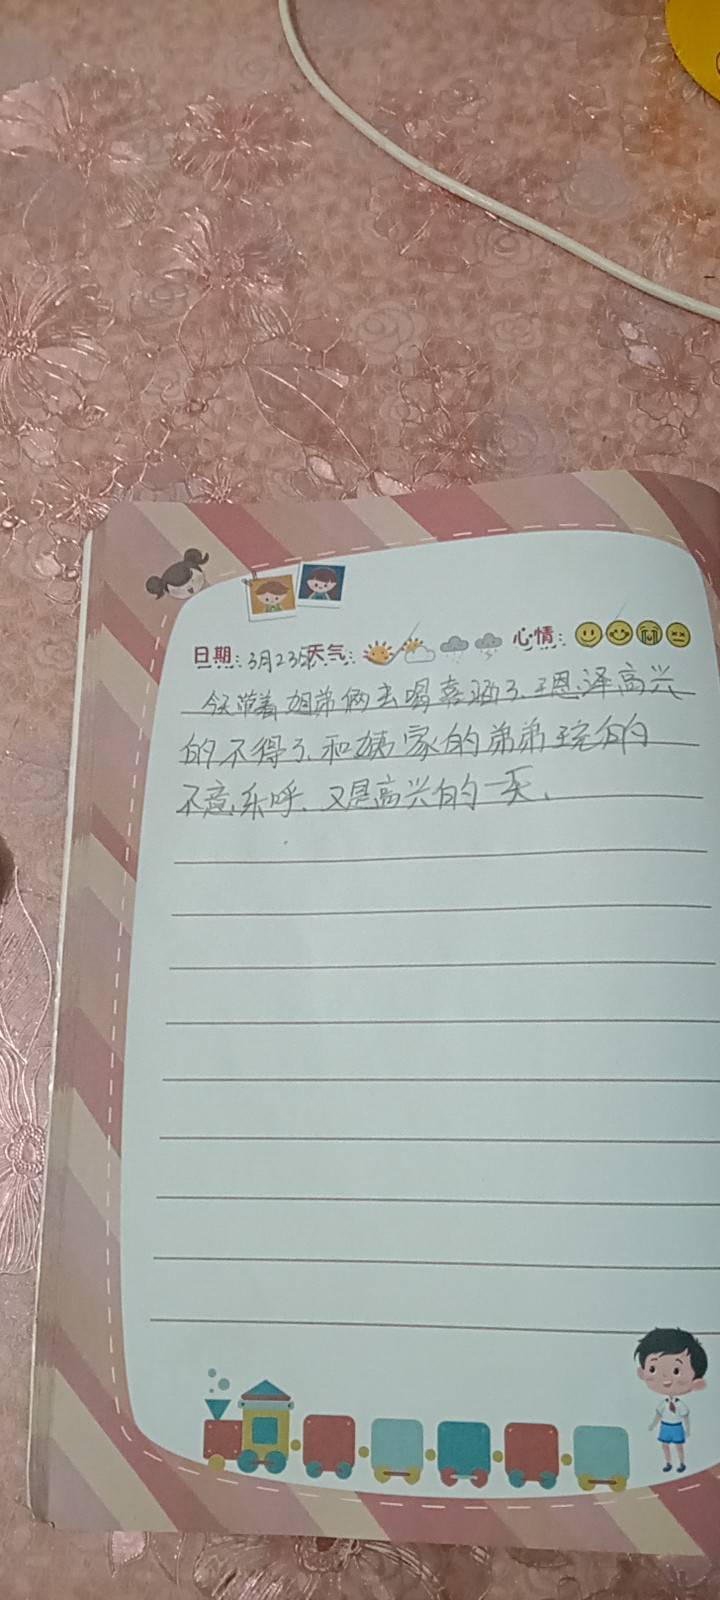 日期：3月23日天气：心情：
今天带着姐弟俩去喝喜酒了、王恩泽高兴
的不得了、和姨家的弟弟玩的
不意乐呼、又是高兴的一天、